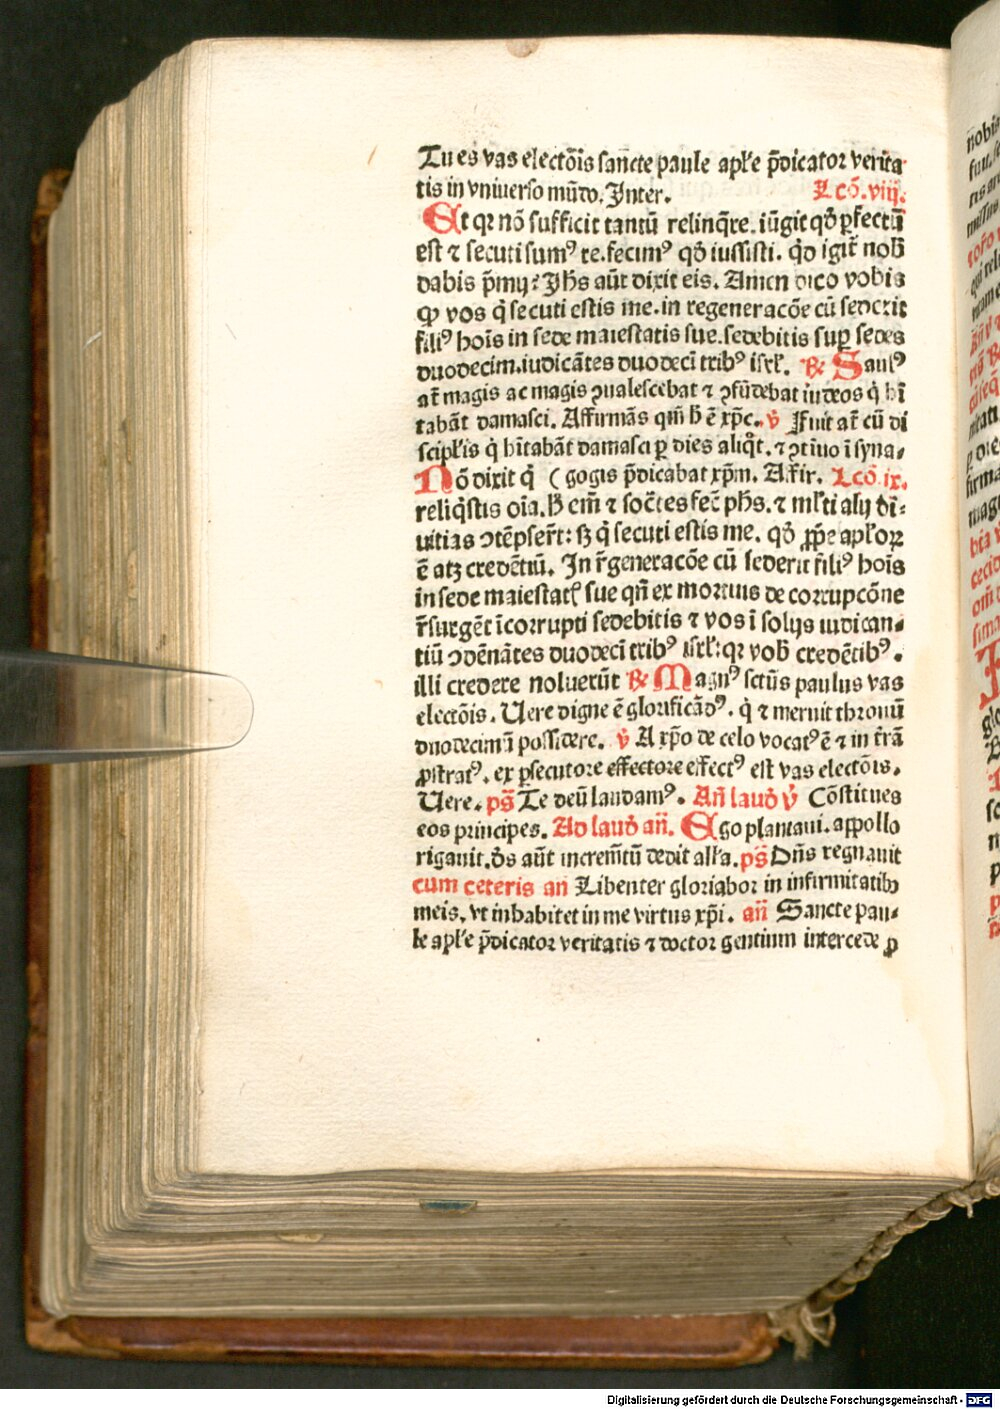 Tu es vas electōis sancte paule apl'e p̄dicator verita
tis in vniuerso mūdo. Inter. Lcō. viij.
Et qꝛ nō sufficit tantū relinq̄re. iūgit qđ ꝑfectū
est ⁊ secuti sumꝰ te. fecimꝰ qđ iussisti. q̇d igit̄ nob̄
dabis p̄mij? Ihs aūt dixit eis. Amen dico vobis
ꝙ vos q̇ secuti estis me. in regeneracōe cū sederit
filiꝰ hoīs in sede maiestatis sue. sedebitis suꝑ sedes
duodecim. iudicātes duodecī tribꝰ isrl'. ℟ Saulꝰ
at̄ magis ac magis ꝯualescebat ⁊ ꝯfūdebat iudeos q̇ hī
tabāt damasci. Affirmās qm̄ h̄ ē xp̄c. ℣ Fuit at̄ cū di
scipl'is q̇ hītabāt damasci ꝑ dies aliq̇t. ⁊ ꝯtīuo ī syna⸗
Nō dixit q̇ ( gogis p̄dicabat xp̄m. Affir. Lcō. ix.
reliq̇stis oīa. h̄ em̄ ⁊ socͬtes fec̄ ph̄s. ⁊ ml'ti alij di⸗
uitias ꝯtēpser̄t: sꝫ q̇ secuti estis me. qđ ꝓp̄e apl'oꝝ
ē atꝫ credētiū. In r̄generacōe cū sederit filiꝰ hoīs
in sede maiestatꝭ sue qn̄ ex mortuis de corrupcōne
r̄surgēt īcorrupti sedebitis ⁊ vos ī solijs iudican⸗
tiū ꝯdēnātes duodecī tribꝰ isrl': qꝛ vob̄ credētibꝰ.
illi credere noluerūt ℟ Magnꝰ sctūs paulus vas
electōis. Uere digne ē glorificādꝰ. q̇ ⁊ meruit thronū
duodecimū possidere. ℣ A xp̄o de celo vocatꝰ ē ⁊ in t̄rā
ꝓstratꝰ. ex ꝑsecutore effectore effectꝰ est vas electōis.
Uere. ps̄ Te deū laudamꝰ. Añ laud̄ ℣ Cōstitues
eos principes. Ad laud̄ añ. Ego plantaui. appollo
rigauit. d̄s aūt incremētū dedit all'a. ps̄ Dn̄s regnauit
cum ceteris an Libenter gloriabor in infirmitatibꝫ
meis. vt inhabitet in me virtus xp̄i. añ Sancte pau⸗
le apl'e p̄dicator veritatis ⁊ doctor gentium intercede ꝓ
Digitalisierung gefördert durch die Deutsche Forschungsgemeinschaft - DFG